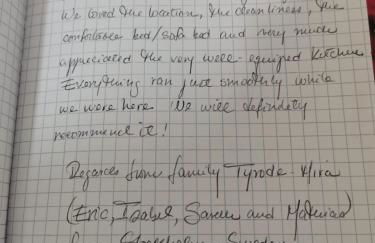 We loved the location, the cleanliness, the
comfortable bed/sofa bed and very much
appreciated the very well equiped kitchen
Everything ran just smoothly while
we were here. We will definitely
recommend it!
Regards from family Tyrode-
(Eric, Isabel, and